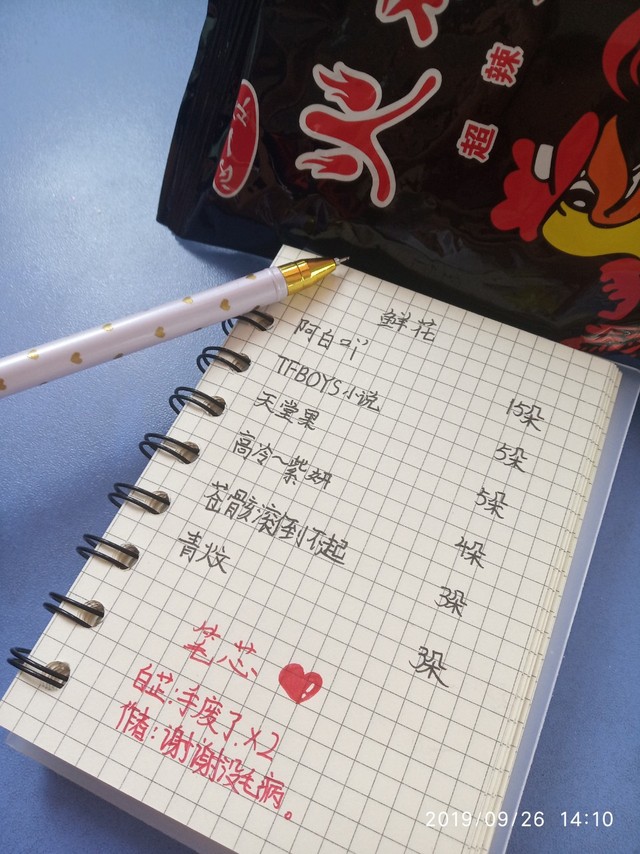 火
超辣
鲜花
阿白吖 15朵
TFBOYS小说 5朵
天堂果 5朵
高冷~紫妍 4朵
苍骸滚倒不起 3朵
青炆 3朵
笔芯
白芷:手废了.X2
作者:谢谢没毛病。
2019/09/26 14:10